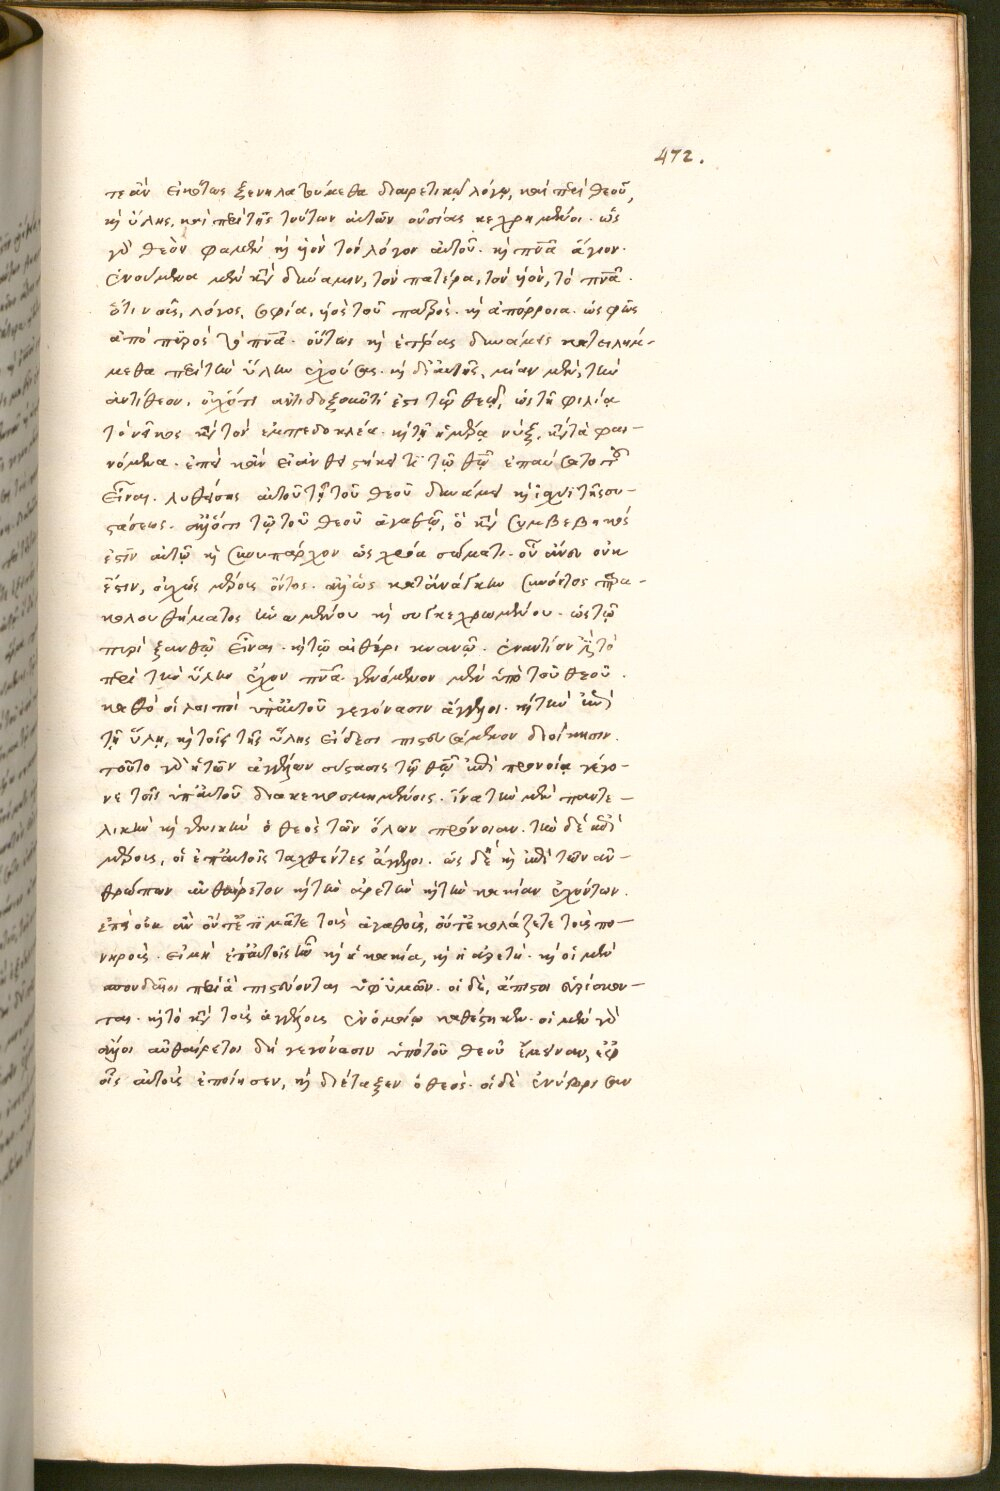 472.
τεᾶν εἰκότως ξενηλατούμεθα διαιρετικῷ λόγῳ, καὶ περὶ θεοῦ,
κ̀ ὕλης, καὶ περὶ τῆς τούτων αὐτῶν οὐσίας κεχρημένοι. ὡς
γὰρ θεὸν φαμὲν κ̀ υἱὸν τὸν λόγον αὐτοῦ. κ̀ πνᾶ ἅγιον.
ἑνούμενα μὲν κατὰ δύναμιν, τὸν πατέρα, τὸν υἱὸν, τὸ πνᾶ.
ὅτι νοῦς, λόγος, σοφία, υἱὸς τοῦ πατρὸς. κ̀ ἀπόρροια. ὡς φῶς
ἀπὸ πυρὸς τὸ πνᾶ. οὕτως κ̀ ἑτέρας δυνάμεις κατειλήμ-
μεθα περὶ τὴν ὕλην ἐχούσας. κ̀ δι' αὐτῆς, μίαν μὲν, τὴν
ἀντίθεον. οὐχ ὅτι ἀντιδοξοῦντί ἐστι τῷ θεῷ, ὡς τῇ φιλίᾳ
τὸ νεῖκος κατὰ τὸν ἐμπεδοκλέα. κ̀ τῇ ἡμέρᾳ νὺξ, κατὰ τὰ φαι-
νόμενα. ἐπεὶ κἂν εἰ ἀνθεστήκει τι τῷ θῷ ἐπαύσατο τοῦ
εἶναι. λυθείσης αὐτοῦ τῇ τοῦ θεοῦ δυνάμει κ̀ ἰσχύϊ τῆς συ-
στάσεως. ἀλλ' ὅτι τῷ τοῦ θεοῦ ἀγαθῷ, ὃ κατὰ συμβεβηκός
ἐστιν αὐτῷ κ̀ συνυπάρχον ὡς χρόα σώματι. οὗ ἄνευ οὐκ
ἔστιν, οὐχ ὡς μέρους ὄντος. ἀλλ' ὡς κατ' ἀνάγκην συνόντος παρα-
κολουθήματος ἡνωμένου κ̀ συγκεχρωσμένου. ὡς τῷ
πυρὶ ξανθῷ εἶναι. κ̀ τῷ αἰθέρι κυανῷ. ἐναντίον ἐστὶ τὸ
περὶ τὴν ὕλην ἔχον πνᾶ. γενόμενον μὲν ὑπὸ τοῦ θεοῦ.
καθὸ οἱ λοιποὶ ὑπ' αὐτοῦ γεγόνασιν ἄγγελοι. κ̀ τὴν ἐπὶ
τῇ ὕλῃ, κ̀ τοῖς τῆς ὕλης εἴδεσι πιστευσάμενον διοίκησιν.
τοῦτο γὰρ ἡ τῶν ἀγγέλων σύστασις τῷ θῷ ἐπὶ προνοίᾳ γέγο-
νε τοῖς ὑπ' αὐτοῦ διακεκοσμημένοις. ἵνα τὴν μὲν παντε-
λικὴν κ̀ γενικὴν ὁ θεὸς τῶν ὅλων πρόνοιαν. τὴν δὲ ἐπὶ
μέρους, οἱ ἐπ' αὐτοῖς ταχθέντες ἄγγελοι. ὡς δὲ κ̀ ἐπὶ τῶν ἀν-
θρώπων αὐθαίρετον κ̀ τὴν ἀρετὴν κ̀ τὴν κακίαν ἐχόντων.
ἐπεὶ οὐκ ἂν οὔτ' ἐτιμᾶτε τοὺς ἀγαθοὺς, οὔτ' ἐκολάζετε τοὺς πο-
νηροὺς. εἰ μὴ ἐπ' αὐτοῖς ἦν κ̀ ἡ κακία, κ̀ ἡ ἀρετή. κ̀ οἱ μὲν
σπουδαῖοι περὶ ἃ πιστεύονται ὑφ' ὑμῶν. οἱ δὲ, ἄπιστοι εὑρίσκον-
ται. κ̀ τὸ κατὰ τοὺς ἀγγέλους ἐν ὁμοίῳ καθέστηκεν. οἱ μὲν γὰρ
ἄλλοι αὐθαίρετοι δὴ γεγόνασιν ὑπὸ τοῦ θεοῦ ἔμειναν, ἐφ'
οἷς αὐτοὺς ἐποίησεν, κ̀ διέταξεν ὁ θεὸς. οἱ δὲ ἐνύβρισαν